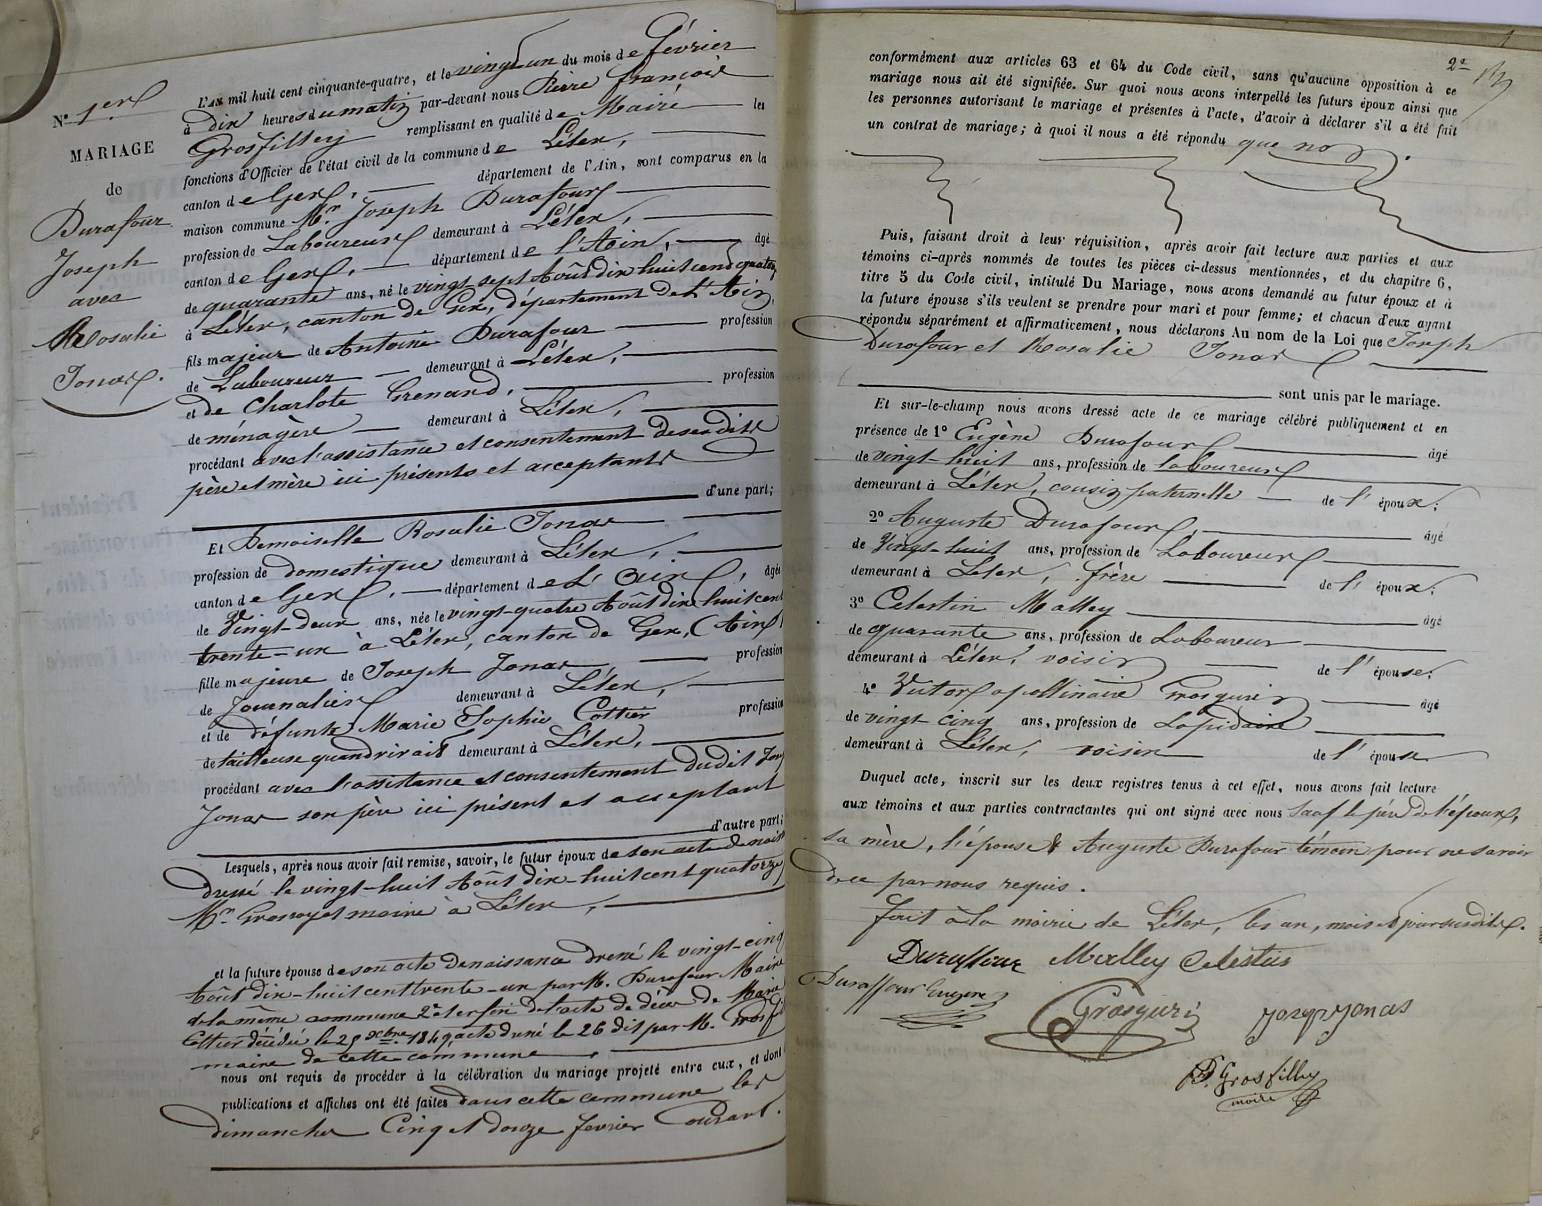 N° 1er
MARIAGE
de
Durafour
Joseph
avec
Rosalie
Jonas.
L'AN mil huit cent cinquante-quatre, et le vingt un du mois de février
à dix heures du matin par-devant nous Pierre françois
Grosfilley remplissant en qualité de Maire les
fonctions d'Officier de l'état civil de la commune de Lélex,
canton de Gex, département de l'Ain, sont comparus en la
maison commune Mr. Joseph Durafour
profession de Laboureur demeurant à Lélex,
canton de Gex, département de l'Ain, âgé
de quarante ans, né le vingt-sept Août dix huit cent quatorze
à Lélex, canton de Gex, département de l'Ain,
fils majeur de Antoine Durafour profession
de Laboureur demeurant à Lélex,
et de Charlote Grenard, profession
de ménagère demeurant à Lélex,
procédant avec l'assistance et consentement de ses dits
père et mère ici présents et acceptants
d'une part;
Et Demoiselle Rosalie Jonas
profession de domestique demeurant à Lélex,
canton de Gex, département de L'Ain, âgée
de Vingt-deux ans, née le vingt-quatre Août dix huit cent
trente-un à Lélex, canton de Gex, (Ain)
fille majeure de Joseph Jonas, profession
de Journalier demeurant à Lélex,
et de défunte Marie Sophie Cottier profession
de tailleuse quand vivait demeurant à Lélex,
procédant avec l'assistance et consentement dudit
Jonas son père ici présent et acceptant
d'autre part;
Lesquels, après nous avoir fait remise, savoir, le futur époux de son acte de naiss
dressé le vingt-huit Août dix-huit cent quatorze
Mr. Grosroyat maire à Lélex,
et la future épouse de son acte de naissance dressé le vingt-cinq
Août dix-huit cent trente-un par M. Durafour Maire
de la même commune 2° et enfin de l'acte de décès de Marie
Cottier décédée le 25 Xbre 1849 acte dressé le 26 dit par M. Grosfil
maire de cette commune,
nous ont requis de procéder à la célébration du mariage projeté entre eux, et dont
publications et affiches ont été faites dans cette commune les
dimanches Cinq et douze février Courant.
2e
conformément aux articles 63 et 64 du Code civil, sans qu'aucune opposition à ce
mariage nous ait été signifiée. Sur quoi nous avons interpellé les futurs époux ainsi que
les personnes autorisant le mariage et présentes à l'acte, d'avoir à déclarer s'il a été fait
un contrat de mariage; à quoi il nous a été répondu que non.
Puis, faisant droit à leur réquisition, après avoir fait lecture aux parties et aux
témoins ci-après nommés de toutes les pièces ci-dessus mentionnées, et du chapitre 6,
titre 5 du Code civil, intitulé Du Mariage, nous avons demandé au futur époux et à
la future épouse s'ils veulent se prendre pour mari et pour femme; et chacun d'eux ayant
répondu séparément et affirmativement, nous déclarons Au nom de la Loi que Joseph
Durafour et Rosalie Jonas
sont unis par le mariage.
Et sur-le-champ nous avons dressé acte de ce mariage célébré publiquement et en
présence de 1° Eugène Durafour âgé
de vingt-huit ans, profession de laboureur
demeurant à Lélex, cousin paternelle de l'époux;
2° Auguste Durafour, âgé
de Vingt-huit ans, profession de Laboureur
demeurant à Lélex, frère de l'époux;
3° Celestin Malley âgé
de quarante ans, profession de Laboureur
demeurant à Lélex, voisin de l'épouse;
4° Victor apollinaire Grosgurin âgé
de vingt cinq ans, profession de Lapidaire
demeurant à Lélex, voisin de l'épouse
Duquel acte, inscrit sur les deux registres tenus à cet effet, nous avons fait lecture
aux témoins et aux parties contractantes qui ont signé avec nous Sauf le père de l'époux,
sa mère, l'épouse & Auguste Durafour témoin pour ne savoir
de ce par nous requis.
fait à la mairie de Lélex, les an, mois et jour susdits.
Duraffour Malley Celestin
Duraffour Eugene
Grosgurin Joseph Jonas
P. Grosfilley
maire